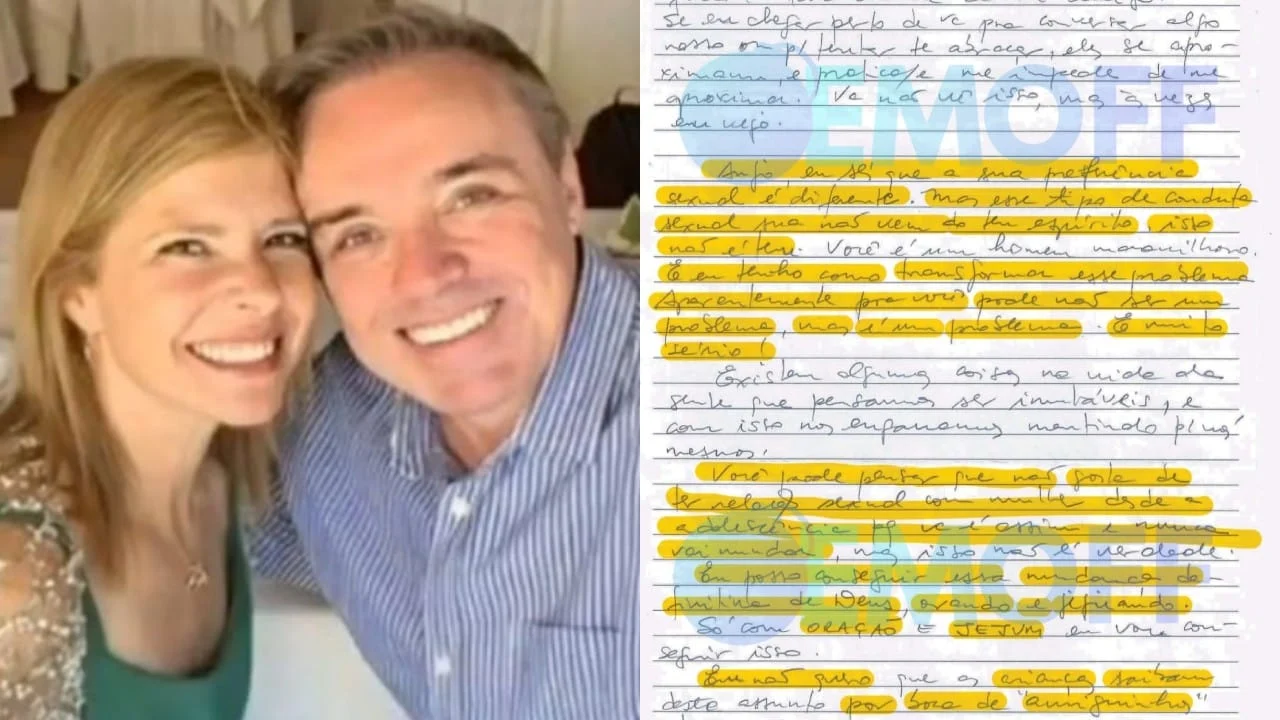 Se eu chegar perto de vc pra conversar algo
nosso ou p/ tentar te abraçar, eles se apro-
ximam, e praticate me impede de me
aproximar. Vc não vê isso, mas às vezes
eu vejo.
EMOFF
Anjo, eu sei que a sua preferência
sexual é diferente. Mas esse tipo de conduta
sexual sua não vem do teu espírito, isso
não é teu. Você é um homem maravilhoso.
E eu tenho como transformar esse problema
Aparentemente pra você pode não ser um
problema, mas é um problema. E muito
sério!
Existem algumas coisas na vida da
gente que pensamos ser imutáveis, e
com isso nos enganamos mentindo p/ nós
mesmos.
Você pode pensar que não gosta de
ter relação sexual com mulher desde a
adolescência pq vc é assim e nunca
vai mudar, mas isso não é verdade.
EMOFF
Eu posso conseguir essa mudança de-
finitiva de Deus, orando e jejuando.
Só com ORAÇÃO E JEJUM eu vou con-
seguir isso.
Eu não quero que as crianças saibam
deste assunto por boca de "amiguinho"